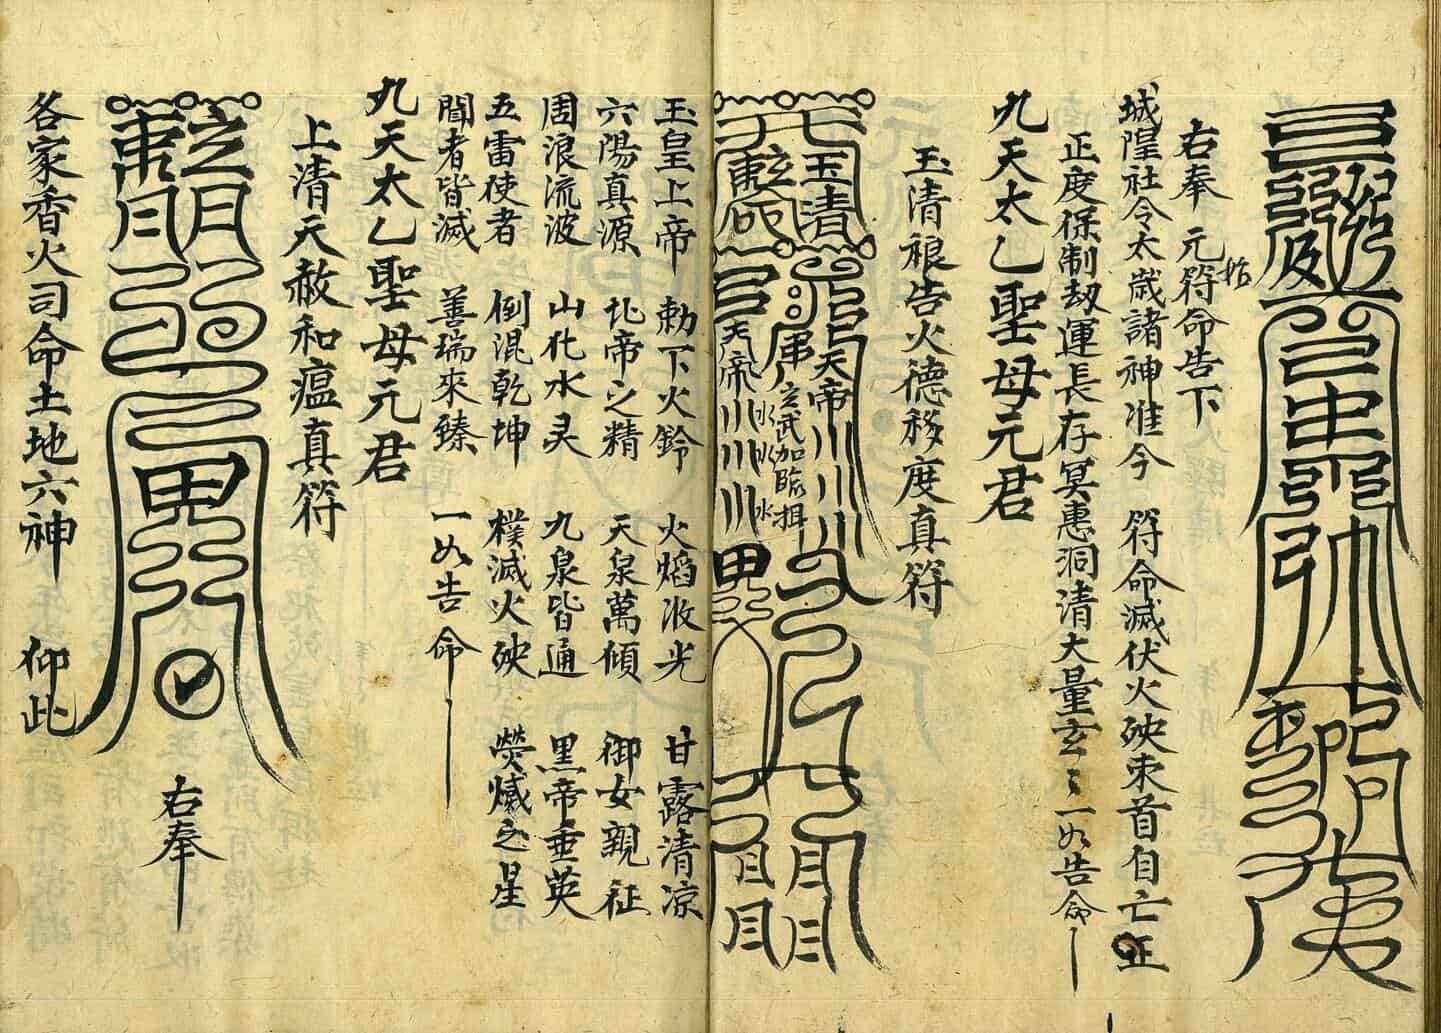 右奉 元符命告下
城隍社令太歲諸神准今 符命滅伏火殃束首自亡正
正度保制劫運長存冥惠洞清大量玄〻一如告命
九天太乙聖母元君
玉清禳告火德移度真符
玉清
天帝
玄武加臨揖
水水水
天帝
玉皇上帝 勅下火鈴 火熖收光 甘露清凉
六陽真源 北帝之精 天泉萬傾 御女親征
周浪流波 山化水灵 九泉皆通 黒帝垂英
五雷使者 倒混乾坤 樸滅火殃 熒惑之星
聞者皆滅 善瑞來臻 一如告命
九天太乙聖母元君
上清天赦和瘟真符
右奉
各家香火司命土地六神 仰此